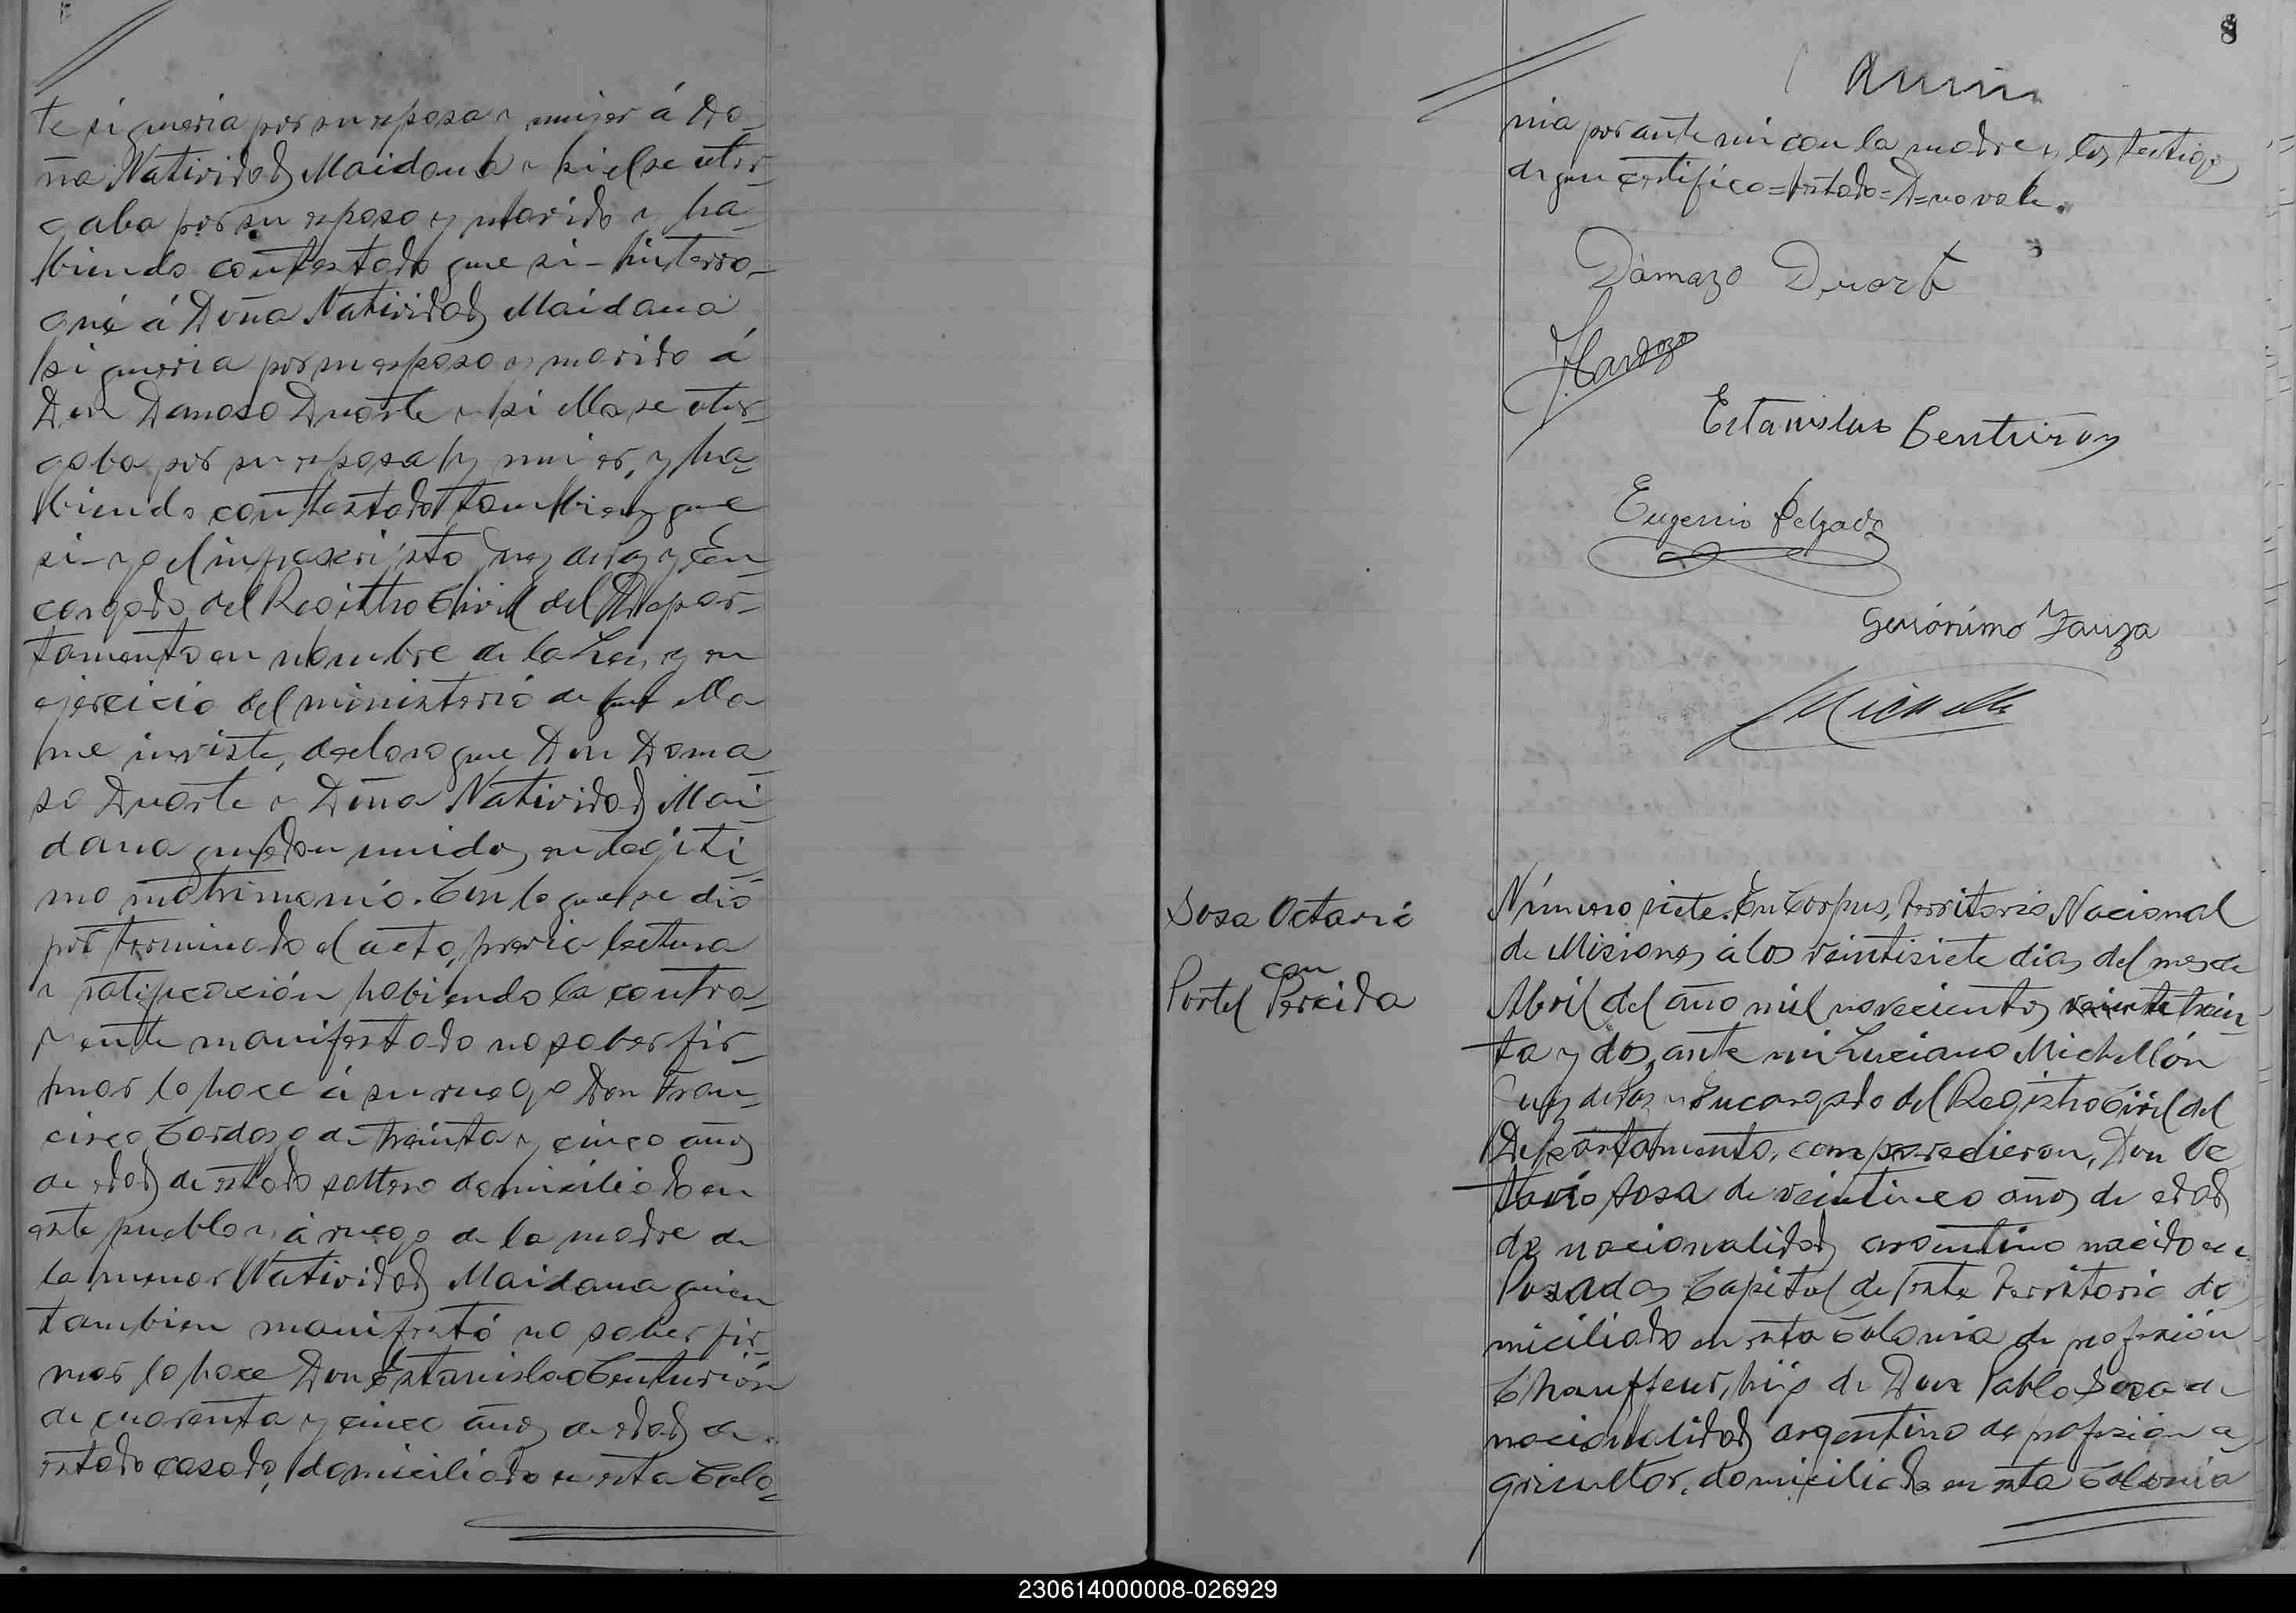 te si queria por su esposa y mujer á Do-
ña Natividad Maidana y si el se otor-
gaba por su esposo y marido y ha-
biendo contestado que si - interro-
gué á Doña Natividad Maidana
si queria por su esposo y marido á
Don Damaso Duarte y si ella se otor-
gaba por su esposa y mujer, y ha-
biendo contestado tambien que
si - yo el infrascripto Juez de Paz y En-
cargado del Registro Civil del Depar-
tamento en nombre de la Ley y en
ejercicio del ministerio de que ella
me inviste, declaro que Don Dama-
so Duarte y Doña Natividad Mai-
dana quedan unidos en legiti-
mo matrimonio. Con lo que se dió
por terminado el acto, previa lectura
y ratificación habiendo la contra-
yente manifestado no saber fir-
mar lo hace á su ruego Don Fran-
cisco Cardozo de treinta y cinco años
de edad de estado soltero domiciliado en
este pueblo y á ruego de la madre de
la menor Natividad Maidana quien
tambien manifestó no saber fir-
mar lo hace Don Estanislao Centurión
de cuarenta y cinco años de edad de
estado casado, domiciliado en esta Colo-
8
nia por ante mi con la madre y los testigos
de que certifico = testado = D = no vale.
Dámazo Duarte
F. Cardozo
Estanislao Centurion
Eugenio Delgado
Gerónimo
Sosa Octavio
con
Portel Percida
Número siete. En Corpus, Territorio Nacional
de Misiones á los veintisiete dias del mes de
Abril del año mil novecientos veinte trein-
ta y dos, ante mi Luciano Michellón
Juez de Paz y Encargado del Registro Civil del
Departamento, comparecieron, Don Oc-
tavio Sosa de veinticinco años de edad
de nacionalidad argentino nacido en
Posadas Capital de este Territorio do-
miciliado en esta Colonia de profesión
Chauffeur, hijo de Don Pablo Sosa de
nacionalidad argentino de profesion a-
gricultor, domiciliado en esta Colonia
230614000008-026929